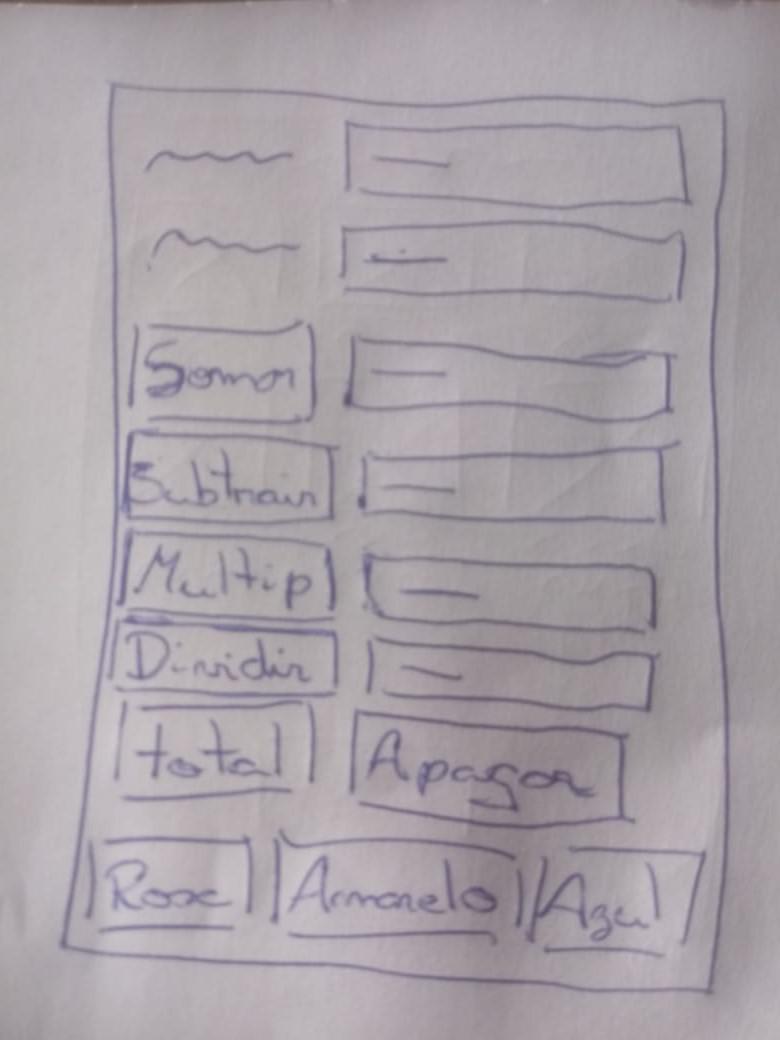 Somar
Subtrair
Multip
Dividir
total Apagar
Rosa Amarelo Azul